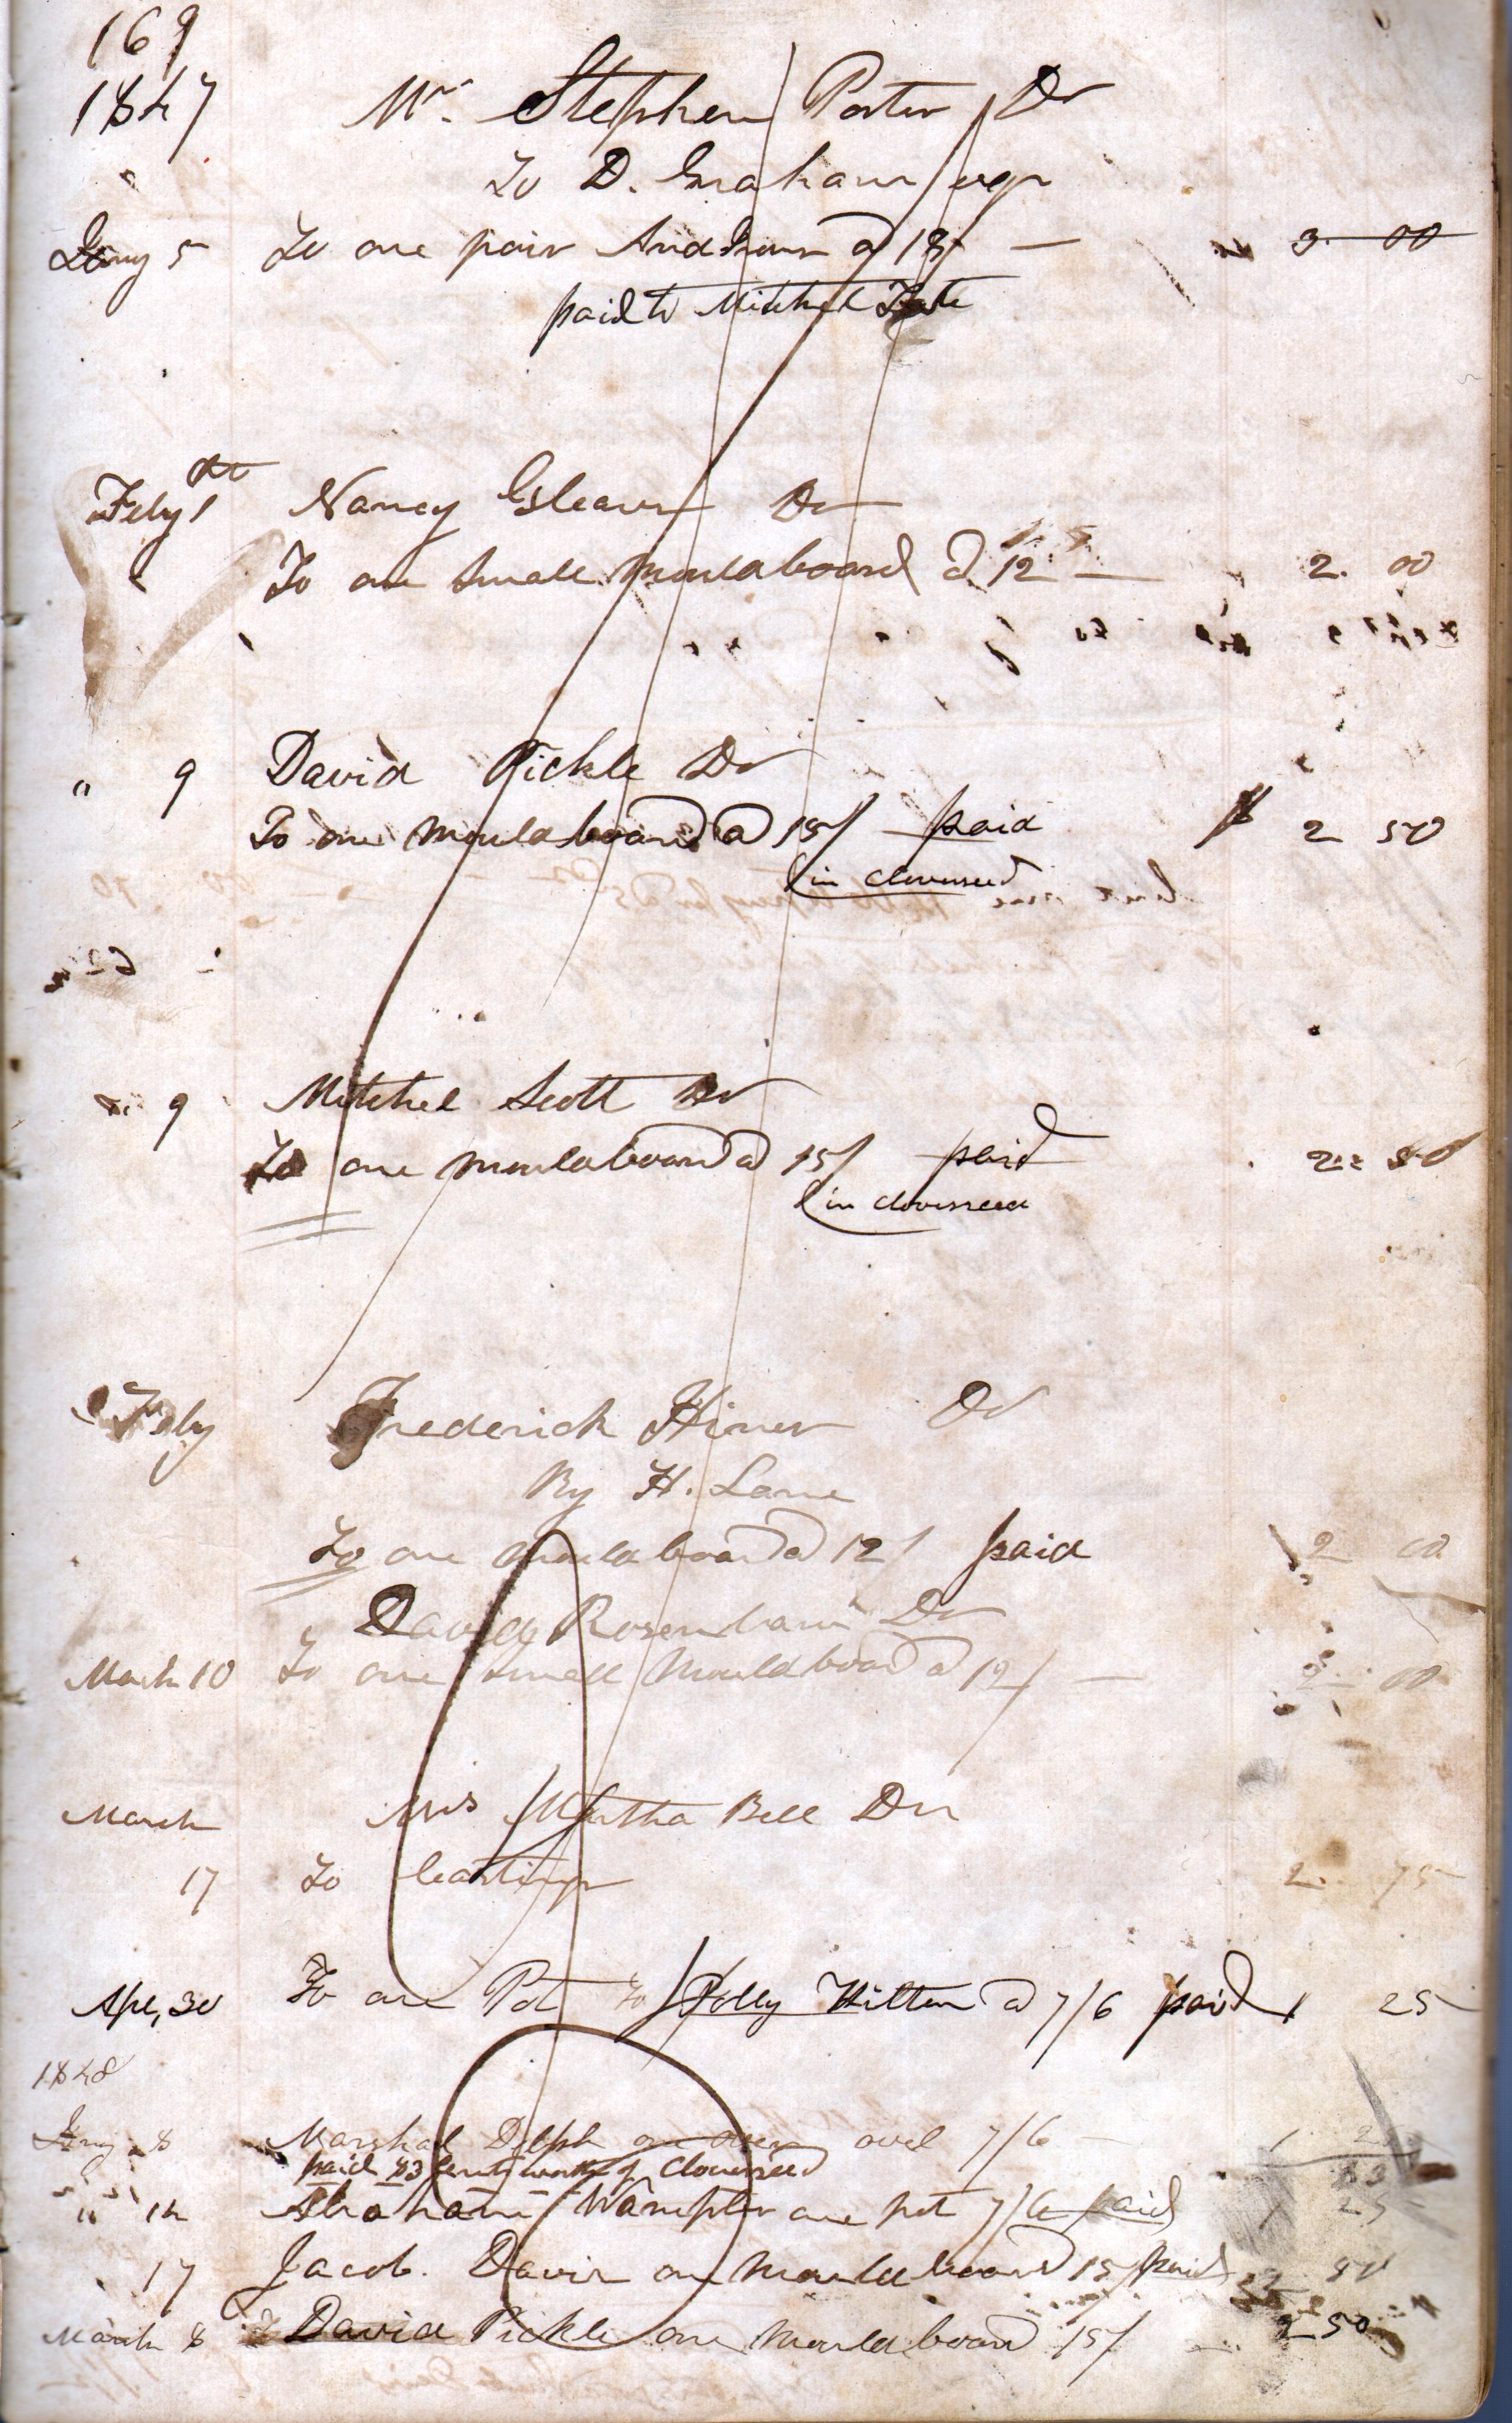 169
1847 Mr. Stephen Porter Dr
To D. Graham
Jany 5 To one pair And Irons @ 18/ — 3. 00
paid to Mitchel Tate
Feby 1st Nancy Gleaves Dr
To one small mouldboard @ 12 — 2. 00
" 9 David Pickle Dr
To one mouldboard @ 15/ paid $ 2 50
in cloverseed
" 9 Mitchel Scott Dr
To one mouldboard @ 15/ paid 2: 50
in cloverseed
Feby Frederick Hiner Dr
By H. Lane
To one mouldboard @ 12/ paid 2 00
David Rosenbam Dr
March 10 To one small mouldboard @ 12/ — 2 00
March Mrs Martha Bell Dr
17 To Castings 2. 75
Apl, 30 To one Pot To Polly Hilton @ 7/6 paid 1 25
1848
Jany 8 Marshal Delph one oven ovel 7/6 — 1 25
paid 83 cents worth of cloverseed 83
" 14 Abraham Wampler one pot 7/6 paid 1 25
17 Jacob. Davis one mouldboard 15/ paid 2 50
March 8 David Pickle one mouldboard 15/ 2 50